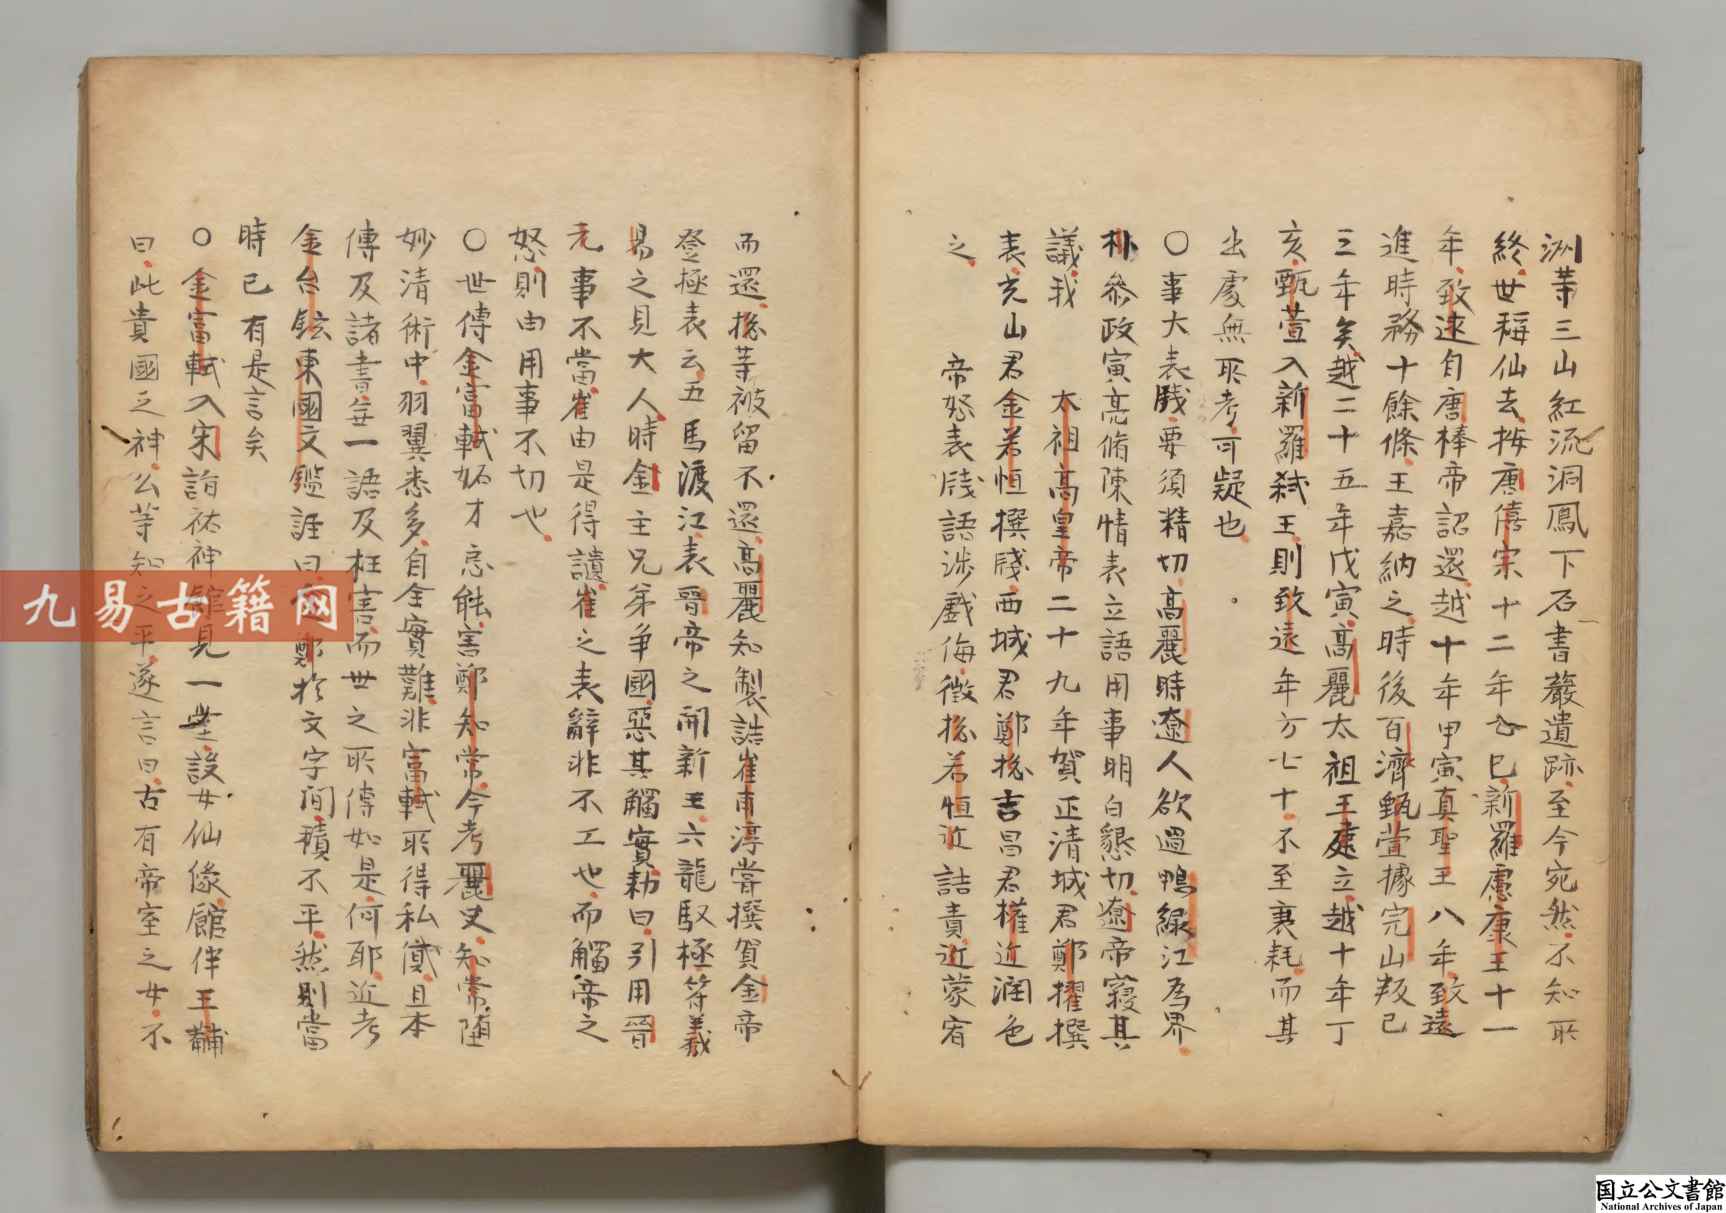 洲等三山紅流洞鳳下石書巖遺跡至今宛然不知所
終世稱仙去按唐僖宗十二年乙巳新羅憲康王十一
年致遠自唐棒帝詔還越十年甲寅真聖王八年致遠
進時務十餘條王嘉納之時後百濟甄萱據完山叛已
三年矣越二十五年戊寅高麗太祖王建立越十年丁
亥甄萱入新羅弑王則致遠年方七十不至衰耗而其
出處無所考可疑也
○事大表牋要須精切高麗時遼人欲過鴨綠江為界
朴參政寅亮脩陳情表立語用事明白懇切遼帝寢其
議我 太祖高皇帝二十九年賀正清城君鄭擢撰
表兗山君金若恒撰牋西城君鄭摠吉昌君權近潤色
之 帝怒表牋語涉戲侮徵摠若恒近詰責近蒙宥
而還摠等被留不還高麗知製誥崔甫淳嘗撰賀金帝
登極表云五馬渡江表晉帝之開新王六龍馭極符羲
易之見大人時金主兄弟爭國惡其觸實勅曰引用晉
元事不當崔由是得譴崔之表辭非不工也而觸帝之
怒則由用事不切也
○世傳金富軾妬才忌能害鄭知常今考麗史知常陷
妙清術中羽翼悉多自全實難非富軾所得私貸且本
傳及諸書無一語及枉害而世之所傳如是何耶近考
金台鉉東國文鑑註曰金鄭於文字間積不平然則當
時已有是言矣
○金富軾入宋詣祐神館見一堂設女仙像館伴王黼
曰此貴國之神公等知之乎遂言曰古有帝室之女不
九易古籍网
国立公文書館
National Archives of Japan